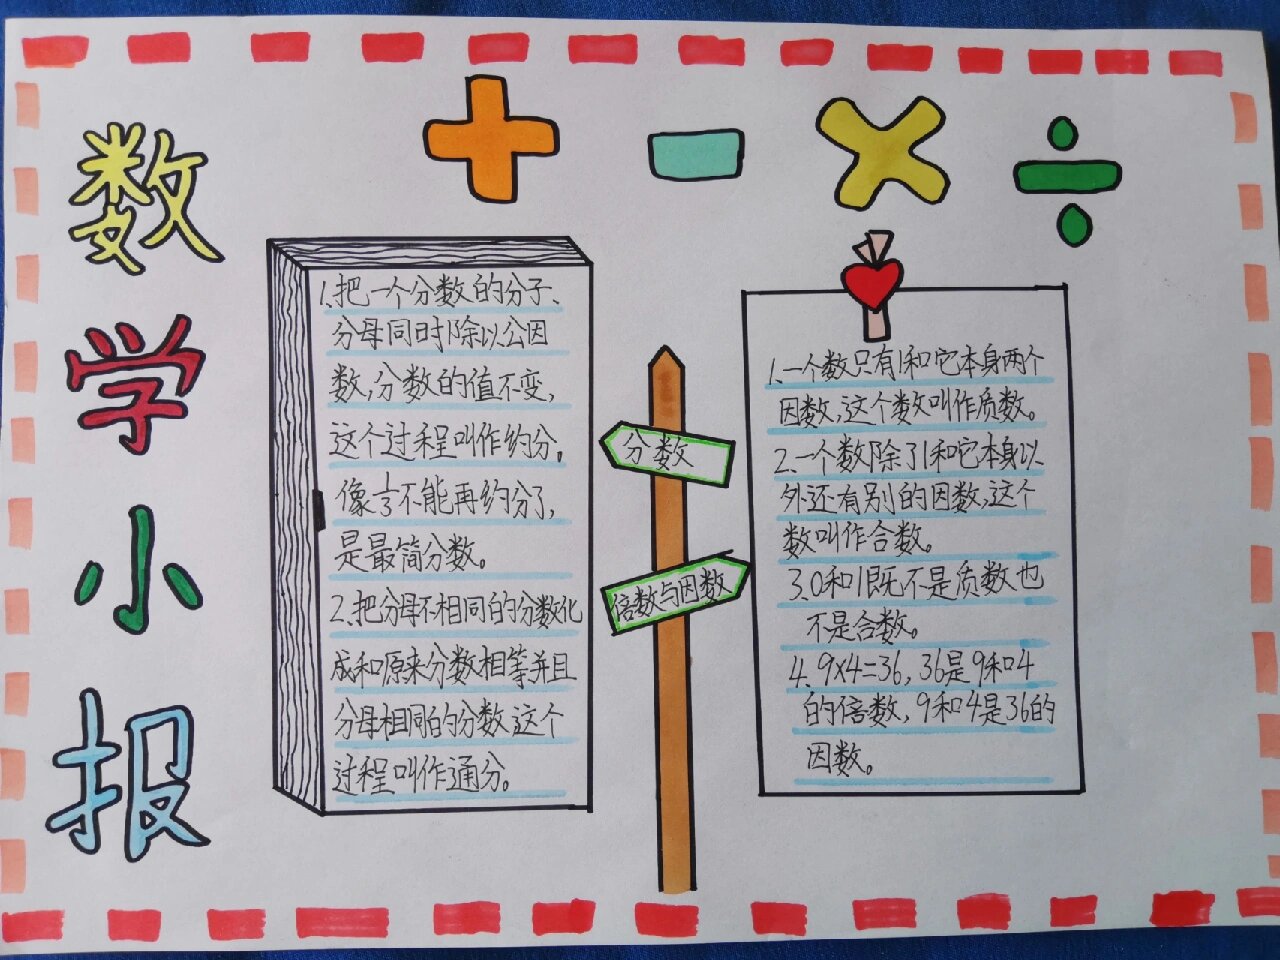 数学小报
+ - × ÷
1.把一个分数的分子、
分母同时除以公因
数,分数的值不变,
这个过程叫作约分。
像⅓不能再约分了,
是最简分数。
2.把分母不相同的分数化
成和原来分数相等并且
分母相同的分数,这个
过程叫作通分。
分数
倍数与因数
1.一个数只有1和它本身两个
因数,这个数叫作质数。
2.一个数除了1和它本身以
外还有别的因数,这个
数叫作合数。
3.0和1既不是质数也
不是合数。
4.9×4=36,36是9和4
的倍数,9和4是36的
因数。